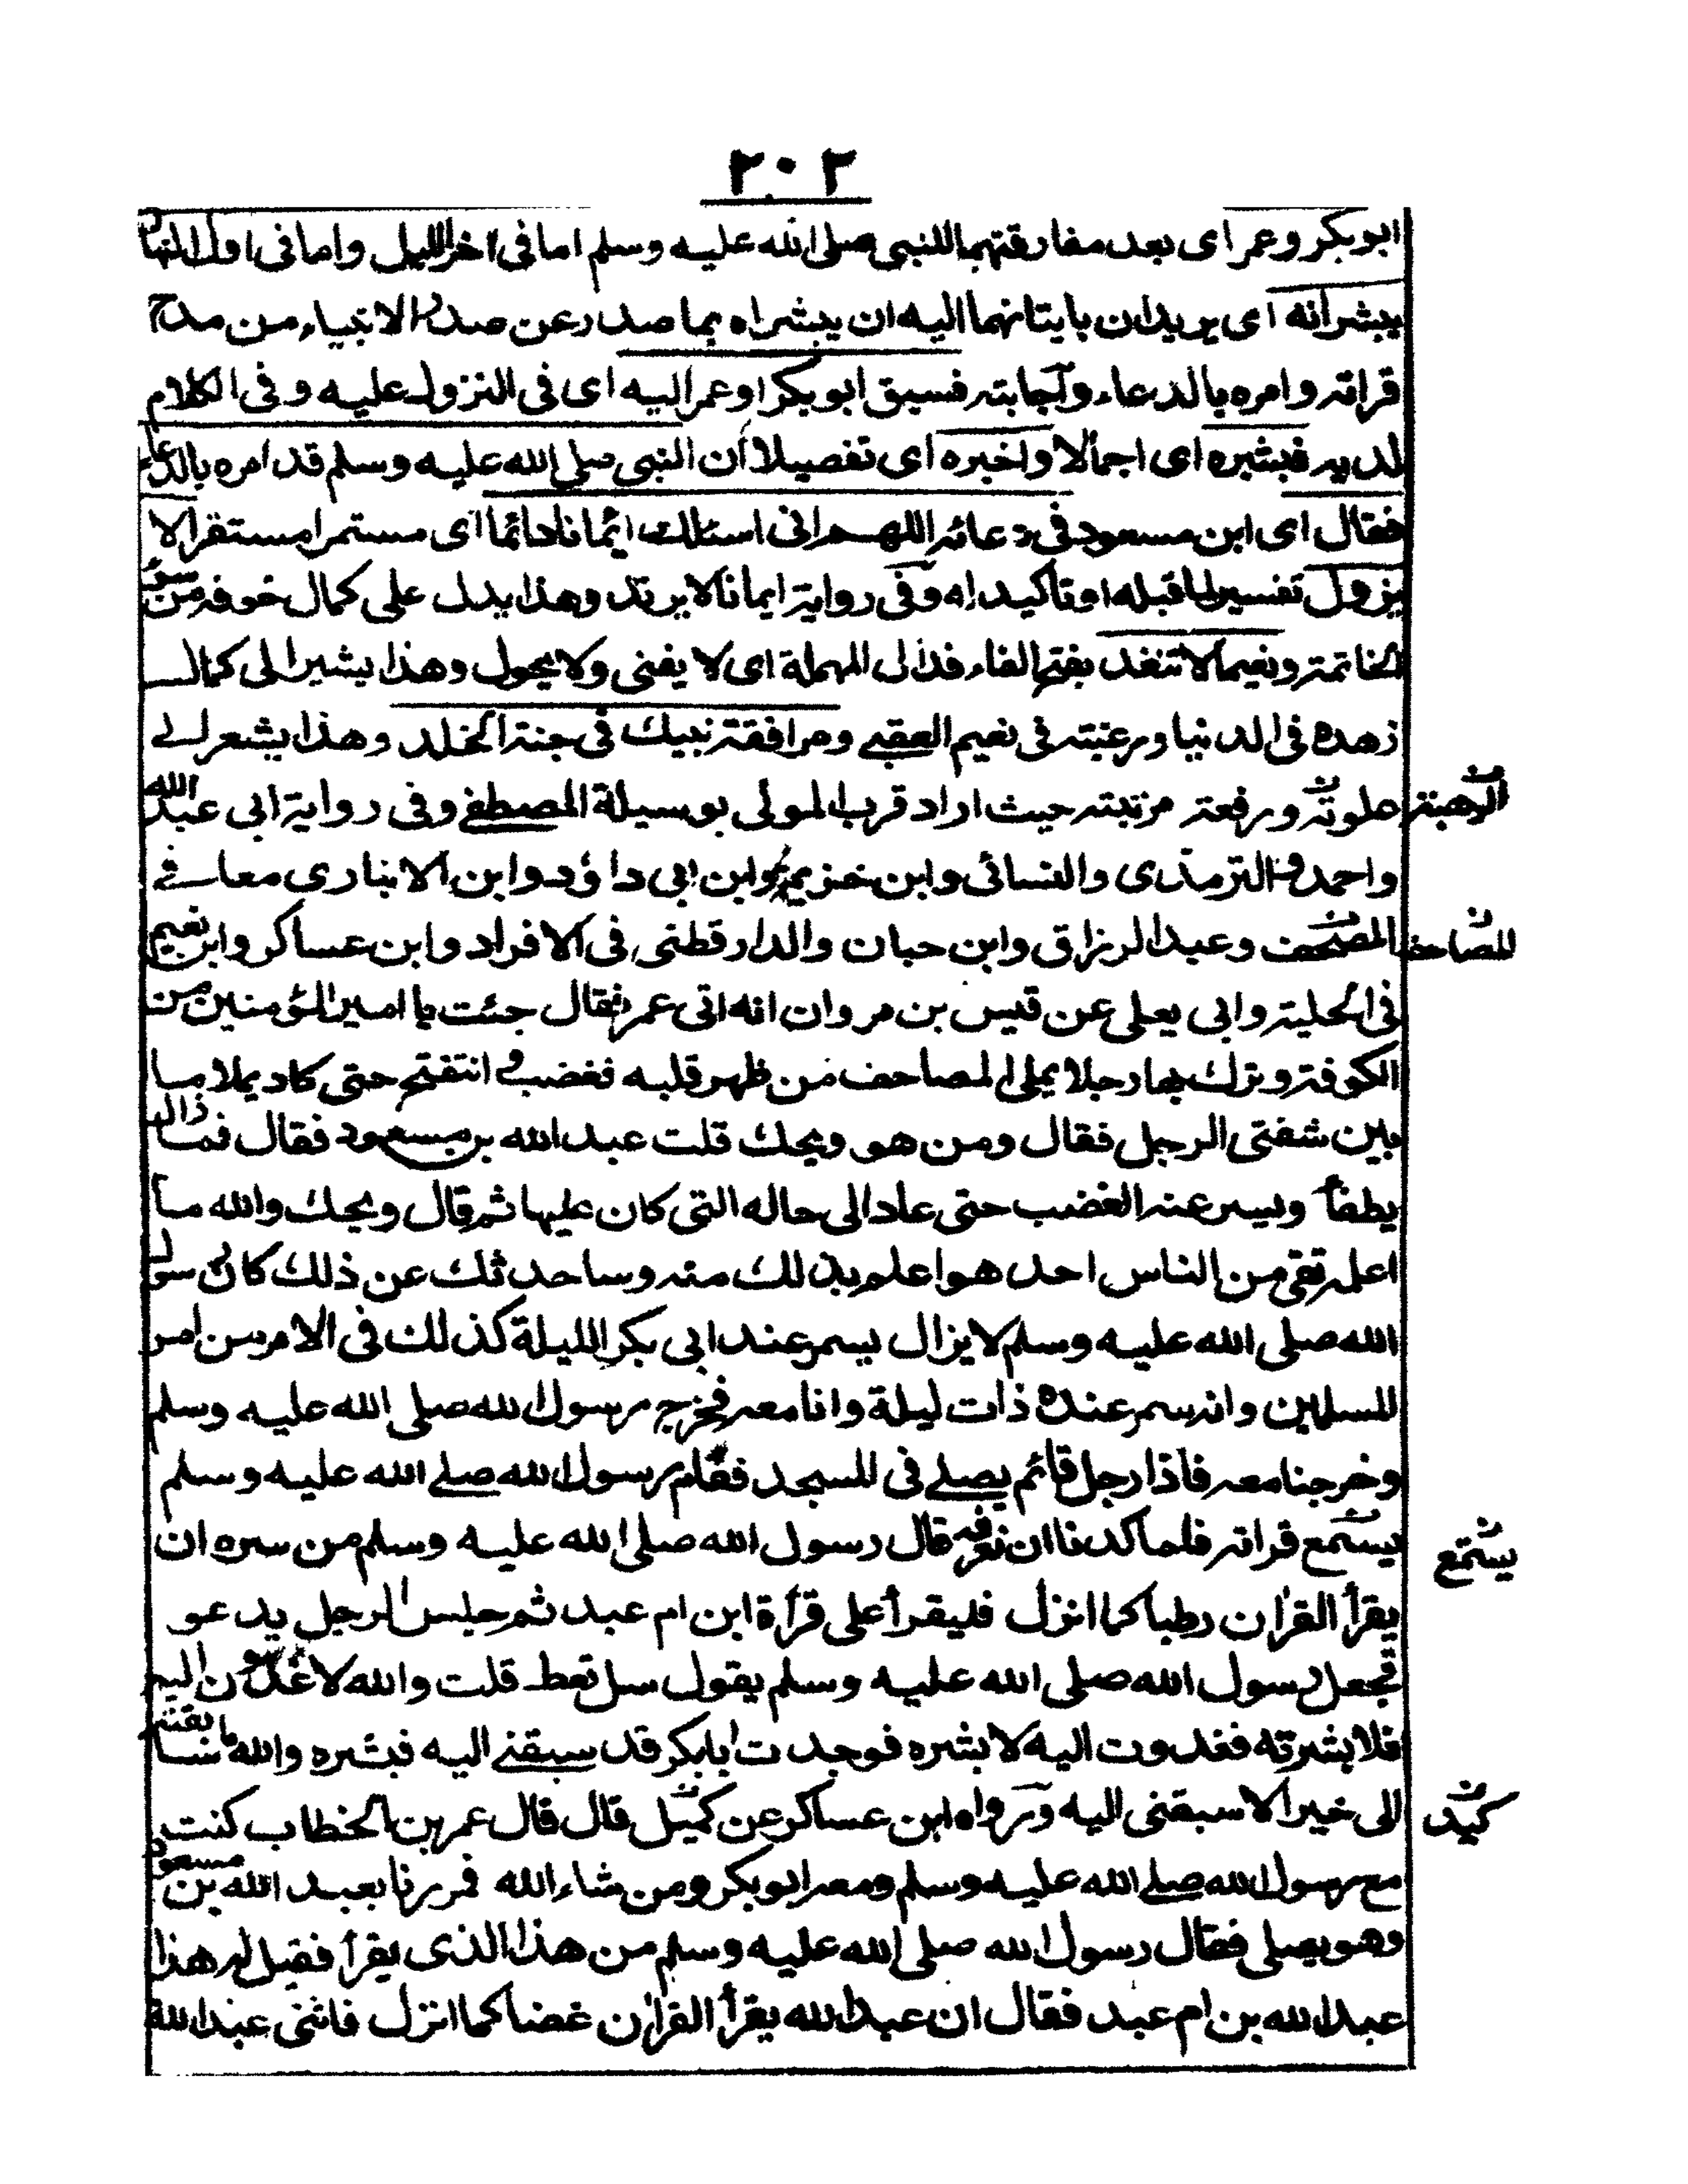 ٢٠٢
ابو بكر وعمر اى بعد مفارقتهما للنبى صلى الله عليه وسلم اما فى اخر الليل واما فى اول النهار
يبشرانه اى يريدان ياتيانهما اليه ان يبشراه بما صدر عن صدر الانبياء من مدح
قراته وامره بالدعاء واجابته فسبق ابو بكر اوعمر اليه اى فى النزول عليه وفى الكلام
لديه فبشره اى اجمالا واخبره اى تفصيلا ان النبى صلى الله عليه وسلم قد امره بالدعاء
فقال اى ابن مسعود فى دعائه اللهم انى اسئلك ايمانا دائما اى مستمرا مستقرا لا
يزول تفسير لما قبله او تاكيد له وفى رواية ايمانا لا يرتد وهذا يدل على كمال خوفه من سوء
الخاتمة ونعيما لا تنفد بفتح الفاء فدال المهملة اى لا يفنى ولا يحول وهذا يشير الى كمال
زهده فى الدنيا ورغبته فى نعيم العقبے ومرافقة نبيك فى جنة الخلد وهذا يشعر الے
علو ورفعة مرتبته حيث اراد قرب المولى بوسيلة المصطفے وفى رواية ابى عبد الله
واحمد والترمذى والنسائى وابن خزيمة وابن ابى داؤد وابن الانبارى معا فے
المصحف وعبد الرزاق وابن حبان والدارقطنى فى الافراد وابن عساكر وابن نعيم
للمصاحف
فى الحلية وابى يعلى عن قيس بن مروان انه اتى عمر فقال جئت يا امير المؤمنين من
الكوفة وترك بها رجلا يملى المصاحف من ظهر قلبه فغضب و انتفتح حتى كاد يملا ما
بين شفتى الرجل فقال ومن هو ويحك قلت عبد الله بن مسعود فقال فما زال
يطفأ ويسر عنه الغضب حتى عاد الى حاله التى كان عليها ثم قال ويحك والله ما
اعلم بقى من الناس احد هو اعلم بذلك منه وساحدثك عن ذلك كان رسول
الله صلى الله عليه وسلم لا يزال يسمر عند ابى بكر الليلة كذلك فى الامر من امر
المسلمين وانه سمر عنده ذات ليلة وانا معه فخرج رسول الله صلى الله عليه وسلم
وخرجنا معه فاذا رجل قائم يصلے فى المسجد فقام رسول الله صلے الله عليه وسلم
يستمع قراته فلما كدنا ان نعرفه قال رسول الله صلى الله عليه وسلم من سره ان
يستمع
يقرأ القران رطبا كما انزل فليقرأ على قرأة ابن ام عبد ثم جلس الرجل يدعو
فجعل رسول الله صلى الله عليه وسلم يقول سل تعط قلت والله لاغدون اليه
فلابشرته فغدوت اليه لابشره فوجدت ابا بكر قد سبقنے اليه فبشره والله ما سابقته
الى خير الا سبقنى اليه ورواه ابن عساكر عن كميل قال قال عمر بن الخطاب كنت
مع رسول الله صلے الله عليه وسلم ومعه ابو بكر ومن شاء الله فمررنا بعبد الله بن مسعود
وهو يصلى فقال رسول الله صلى الله عليه وسلم من هذا الذى يقرأ فقيل له هذا
عبد الله بن ام عبد فقال ان عبد الله يقرأ القران غضا كما انزل فاثنى عبد الله